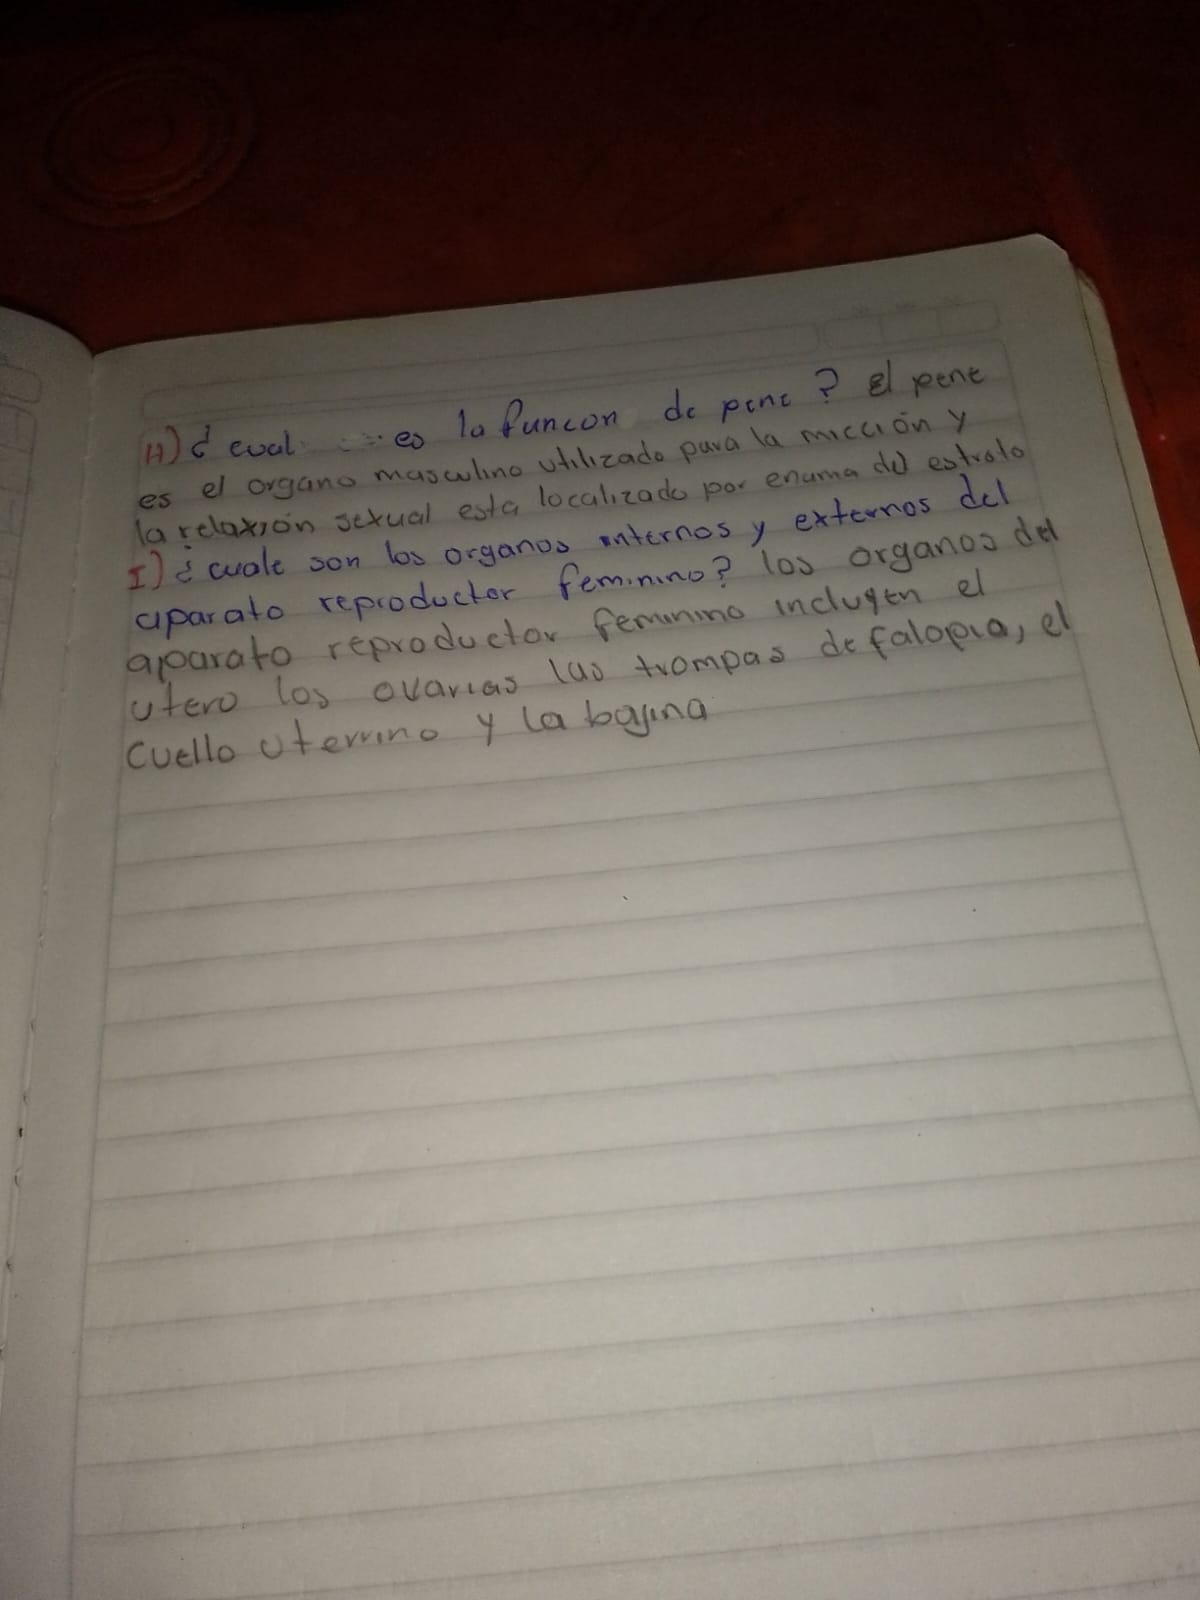 H) ¿ cual es la funcon de pene ? El pene
es el organo masculino utilizado para la micción y
la relaxión sexual esta localizado por enuma del estrato
I) ¿ cuale son los organos internos y externos del
aparato reproductor feminino? los organos del
aparato reproductor feminino incluyen el
utero los ovarias las trompas de falopia, el
Cuello uterrino y la bajina